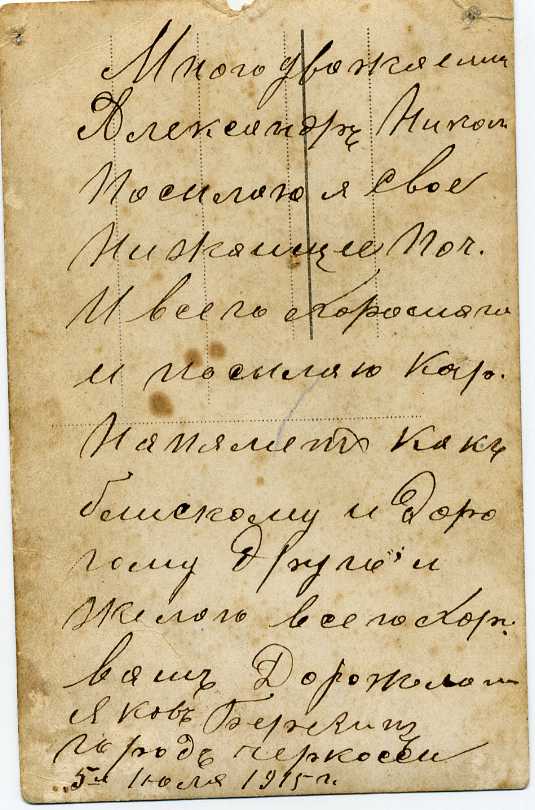 Многоуважаемы
Александръ Никол
Посилаю я свое
Нижающие Поч.
И всего Хорошаго
и посилаю кар.
На паметь какъ
блискому и Доро
гому Другу и
желаю всего Хор.
вашъ Доро
Яковъ
городъ Черкоссы
5го Июля 1915 г.